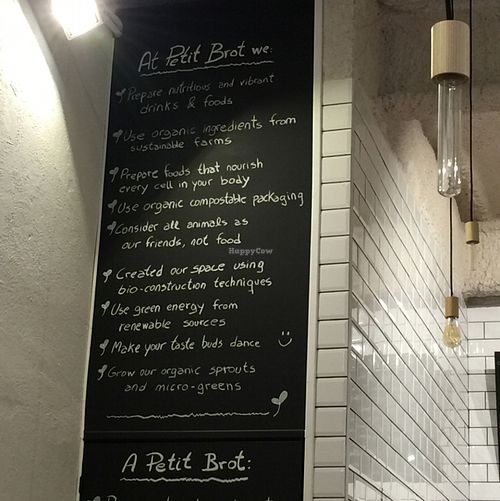 At Petit Brot we:
Prepare nutritious and vibrant
drinks & foods
Use organic ingredients from
sustainable farms
Prepare foods that nourish
every cell in your body
Use organic compostable packaging
Consider all animals as
our friends, not food
HappyCow
Created our space using
bio-construction techniques
Use green energy from
renewable sources
Make your taste buds dance
Grow our organic sprouts
and micro-greens
A Petit Brot: